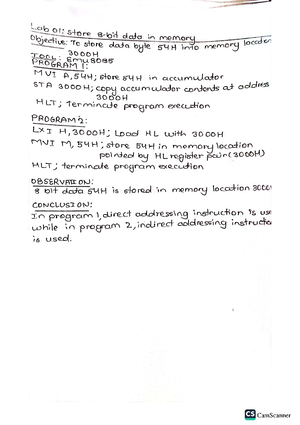 Lab 01: store 8-bit data in memory
Objective: To store data byte 54H into memory location
3000H
TOOL: EMU8085
PROGRAM 1:
MVI A,54H; store 54H in accumulator
STA 3000H; copy accumulator contents at address
3000H
HLT; Terminate program execution
PROGRAM 2:
LXI H,3000H; Load HL with 3000H
MVI M,54H; store 54H in memory location
pointed by HL register pair (3000H)
HLT; terminate program execution
OBSERVATION:
8 bit data 54H is stored in memory location 3000
CONCLUSION:
In program 1, direct addressing instruction is use
while in program 2, indirect addressing instructio
is used.
CS CamScanner